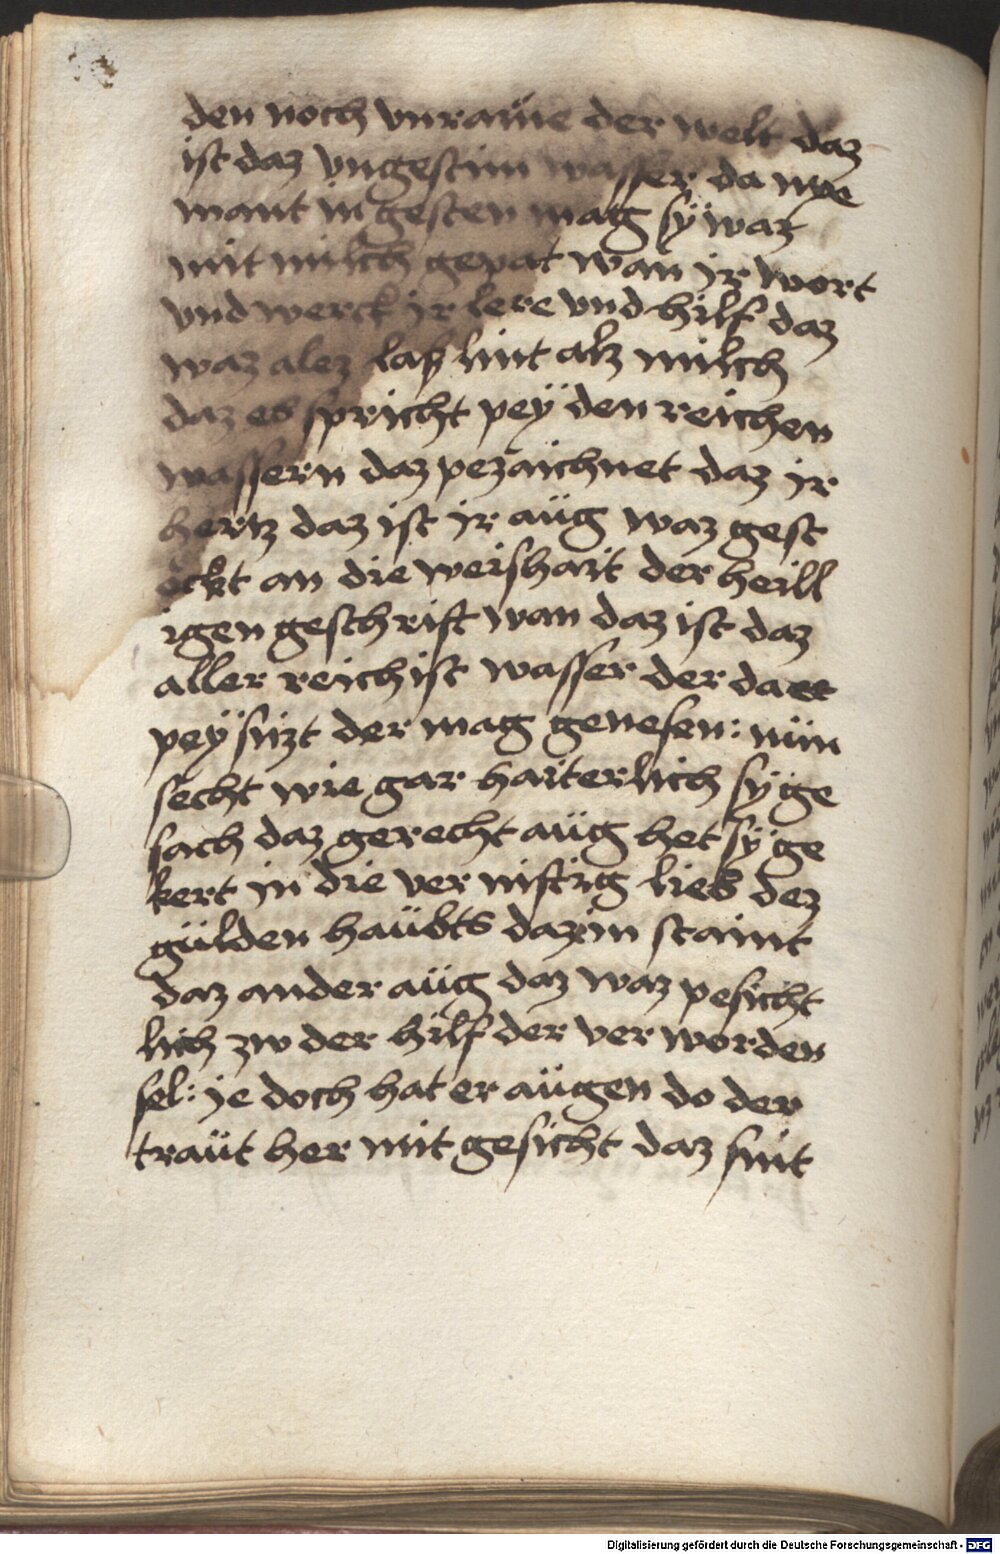 den noch vnraine der welt daz
ist daz vngestim wasser da nye
mant in gesten mag sÿ waz
mit milch gepat wan ir wort
vnd werck ir lere vnd hilf daz
waz alez laß lint alz milch
daz es spricht peÿ den reichen
wassern daz pezaichnet daz ir
hertz daz ist ir aüg waz gest
eckt an die weishait der heill
igen geschrift wan daz ist daz
aller reichist wasser der da
peÿ sitzt der mag genesen: nün
secht wie gar haiterlich sÿ ge
sach daz gerecht aüg het sÿ ge
kert in die ver niftig lieb dez
gülden haübts daz in scaint
daz ander aüg daz waz pesicht
lich zw der hilf der ver worden
sel: je doch hat er aügen do der
traüt her mit gesicht daz sint
Digitalisierung gefördert durch die Deutsche Forschungsgemeinschaft - DFG